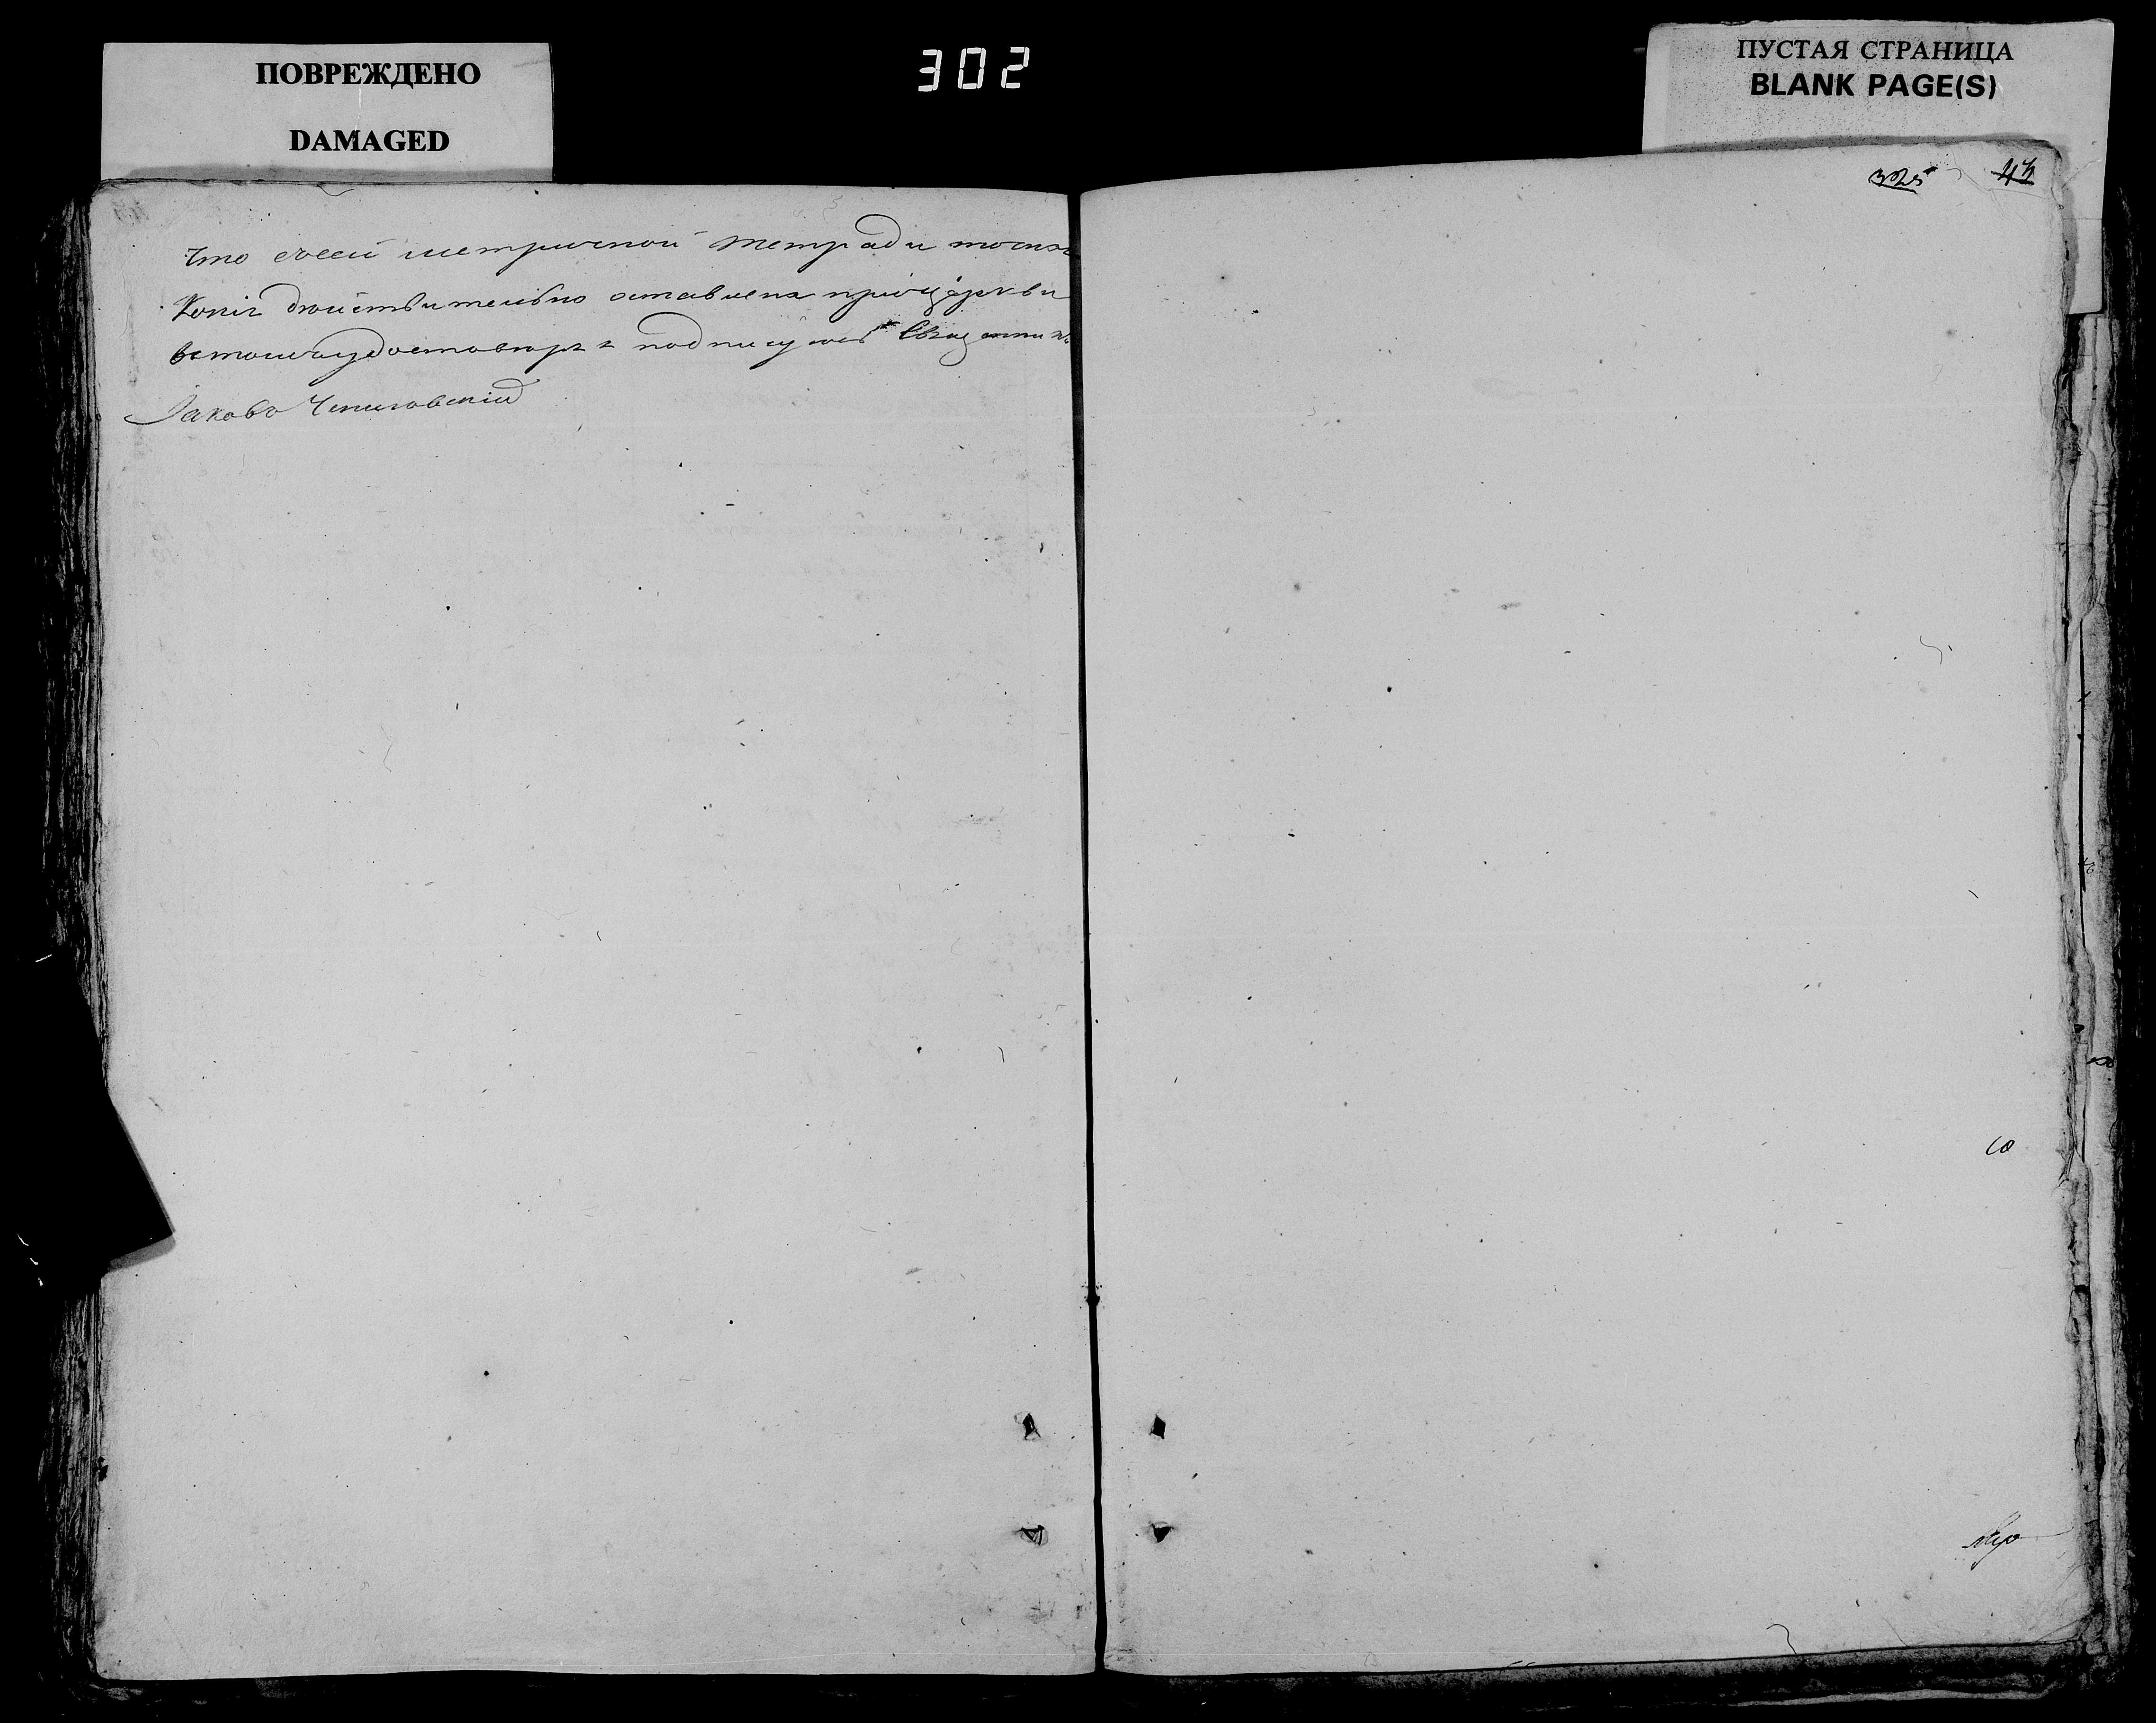 ПОВРЕЖДЕНО
DAMAGED
302
ПУСТАЯ СТРАНИЦА
BLANK PAGE(S)
325 43
Что сией метричной тетради точная
Копія дѣйствительно оставлена прицеркви
втомъ удостовѣряя подписуюсь Священникъ
Іаковъ